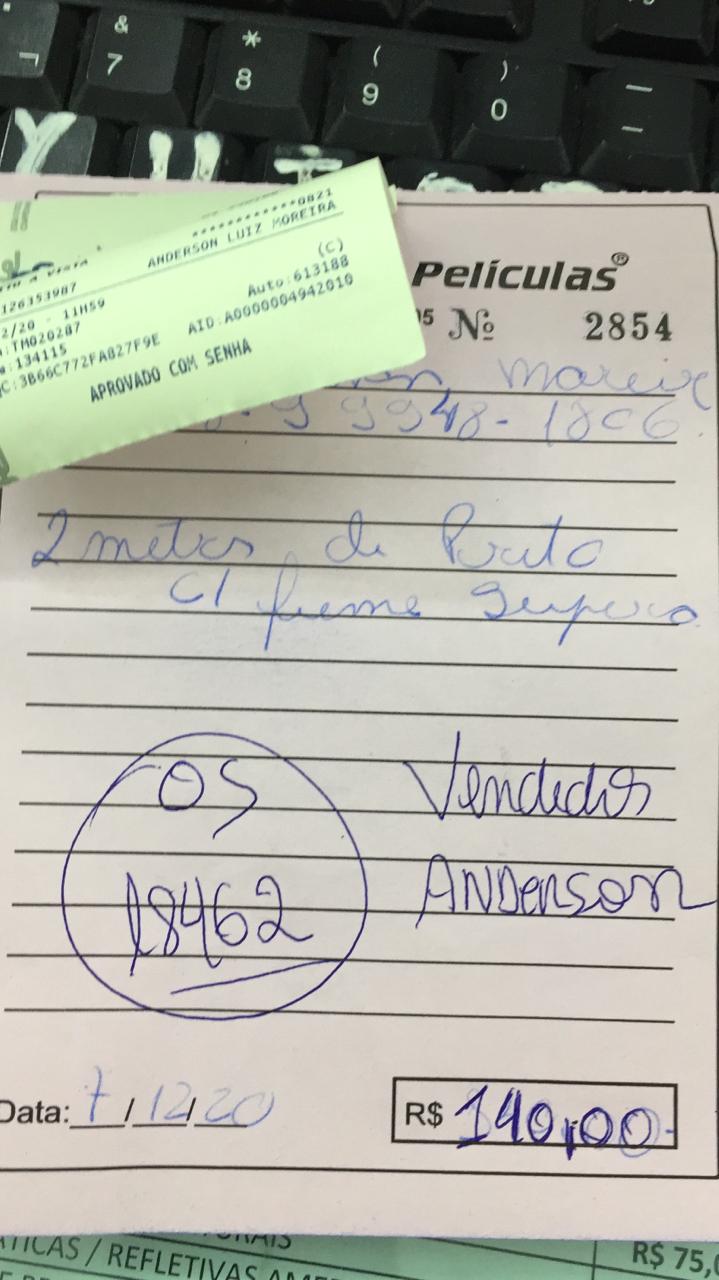 & 7
* 8
( 9
) 0
Y U
0821
ANDERSON LUIZ MOREIRA
126353987 (C)
2/20 - 11H59 Auto:613188
:TM020287
:134115 AID:A0000004942010
C:3B66C772FA827F9E
APROVADO COM SENHA
Películas®
Nº 2854
99948-1806
2 metros de Preto
c/ fume Supero
OS
18462
Vendedor
ANDERSON
Data: 7/12/20
R$ 140,00
ÁTICAS / REFLETIVAS
R$ 75,